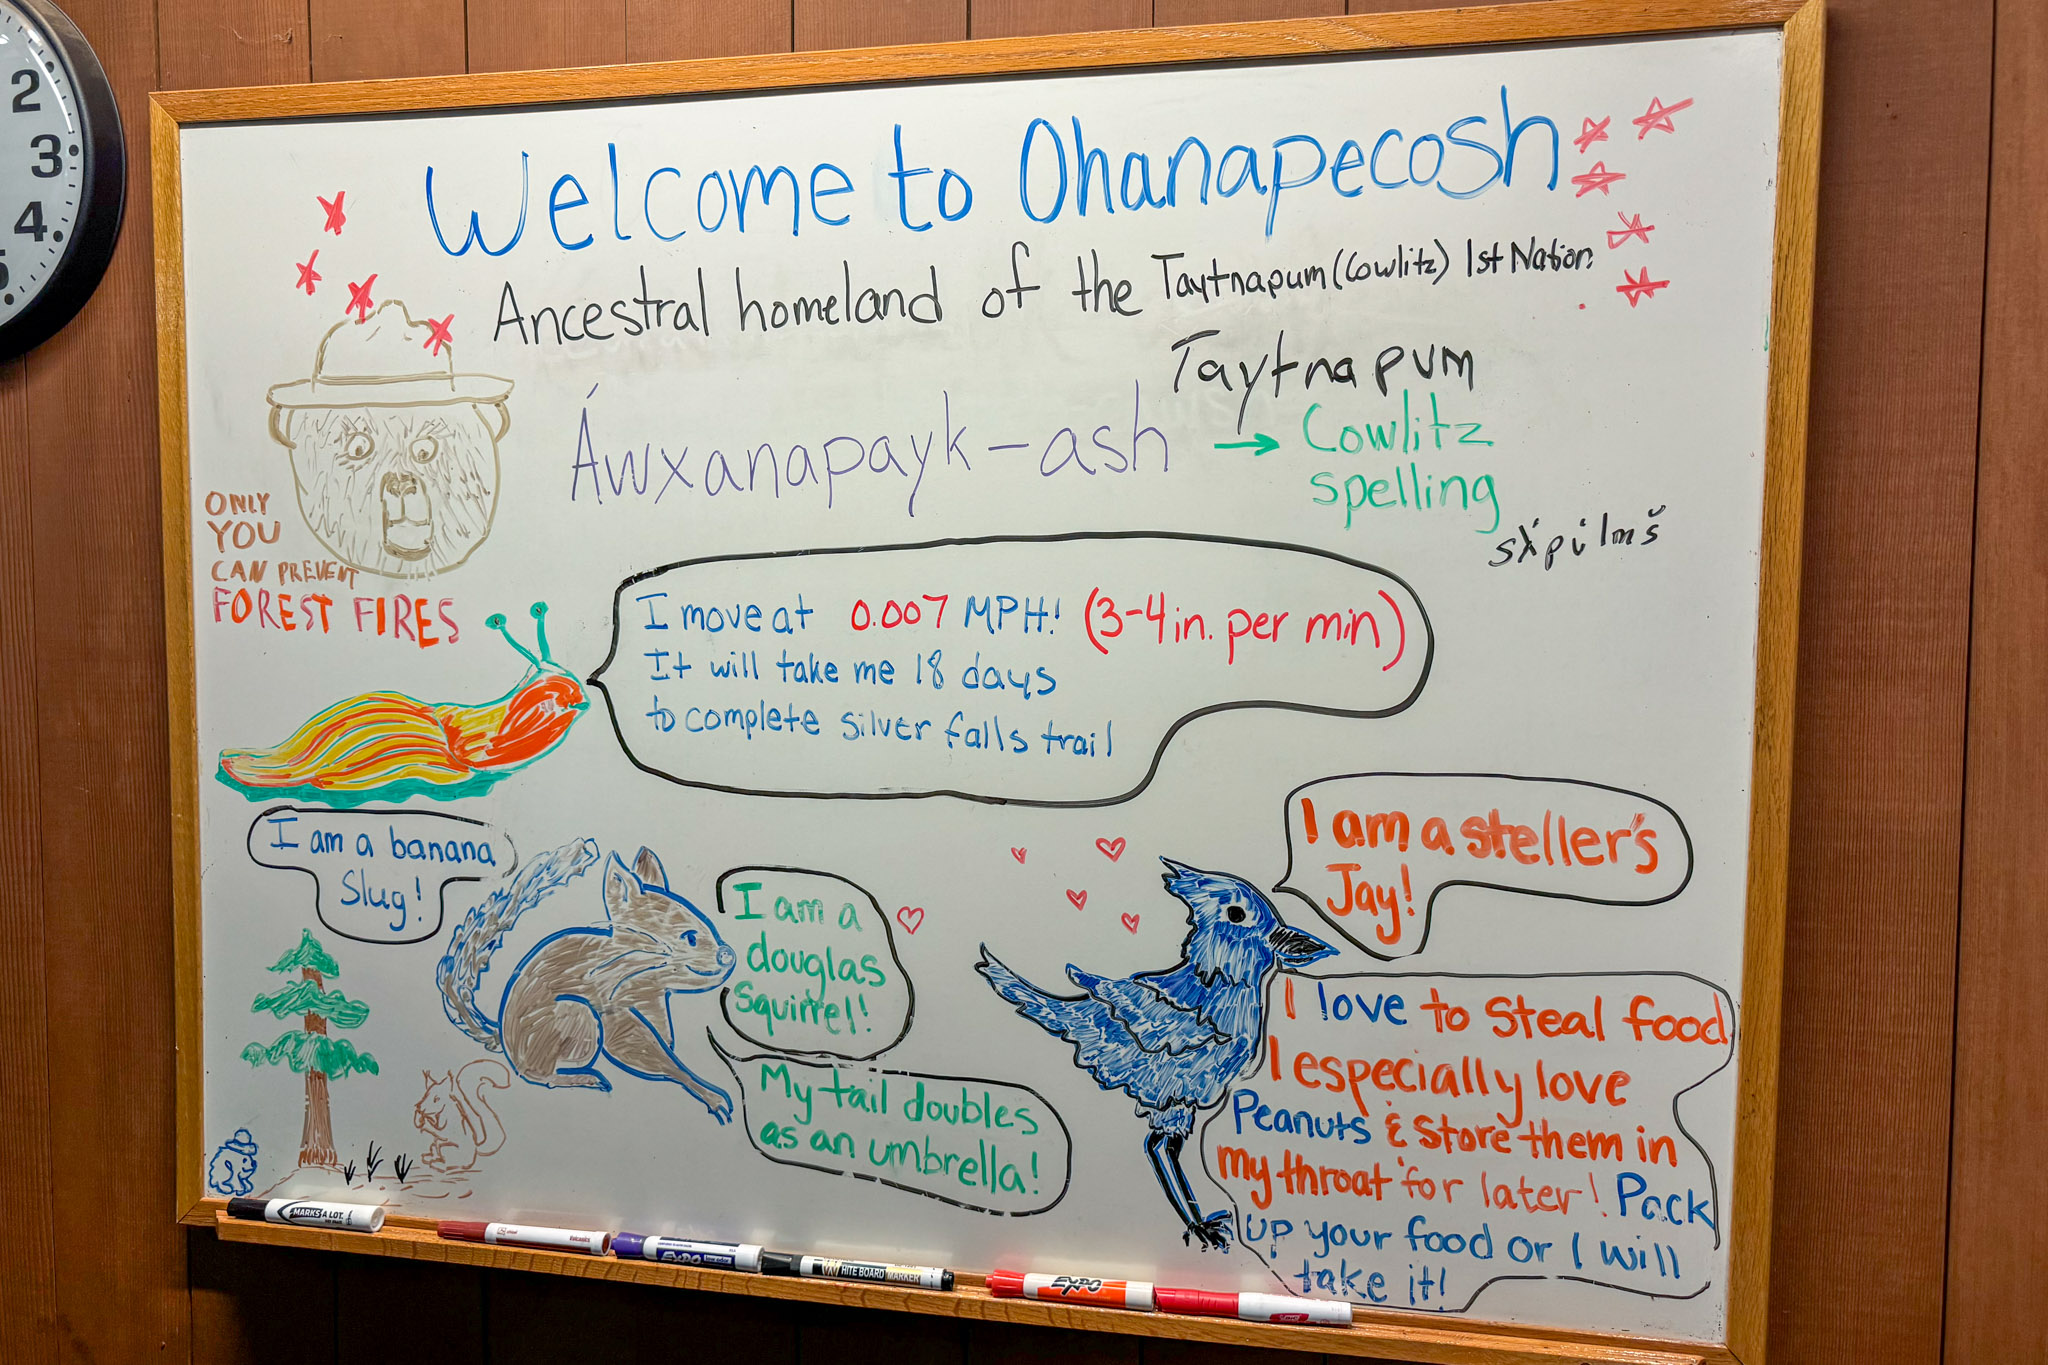 2
3
4
5
Welcome to Ohanapecosh
Ancestral homeland of the Taytnapum (Cowlitz) 1st Nation
Taytnapum
Áwxanapayk-ash → Cowlitz
spelling
ONLY
YOU
CAN PREVENT
FOREST FIRES
I move at 0.007 MPH! (3-4 in. per min)
It will take me 18 days
to complete silver falls trail
I am a banana
Slug!
I am a
douglas
squirrel!
My tail doubles
as an umbrella!
I am a steller's
Jay!
I love to steal food
I especially love
Peanuts & store them in
my throat for later! Pack
up your food or I will
take it!
MARKS A LOT
EXPO
WHITE BOARD MARKER
EXPO